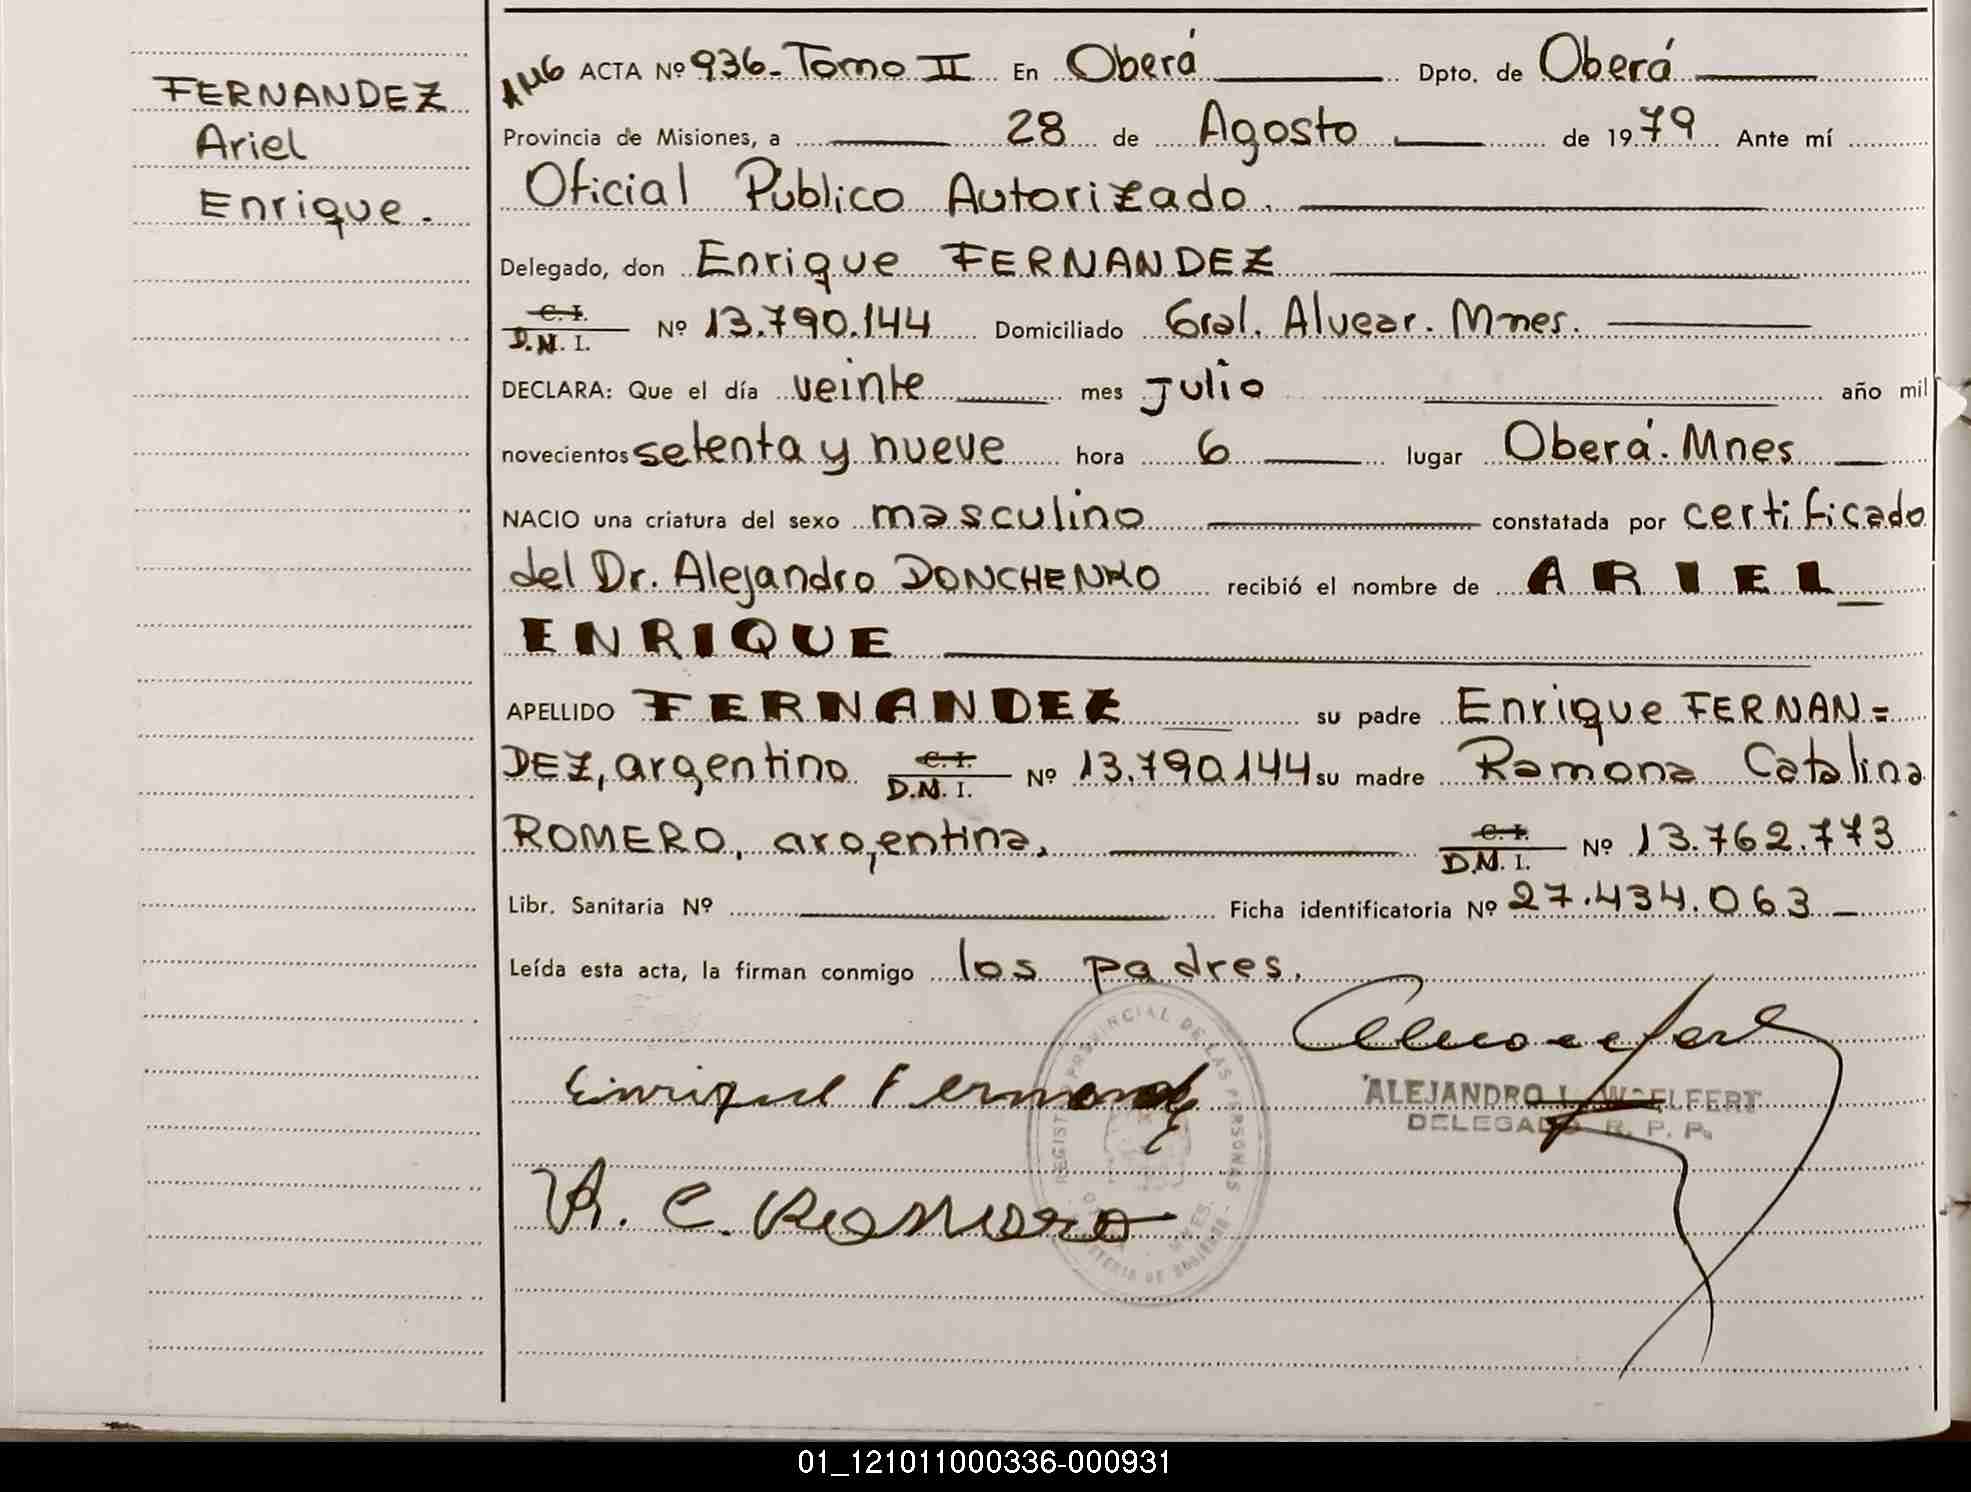 FERNANDEZ
Ariel
Enrique.
AMG ACTA Nº 936-Tomo II En Oberá Dpto. de Oberá
Provincia de Misiones, a 28 de Agosto de 1979 Ante mí
Oficial Público Autorizado.
Delegado, don Enrique FERNANDEZ
C. I.
D.N. I. Nº 13.790.144 Domiciliado Gral. Alvear. Mnes.
DECLARA: Que el día veinte mes julio año mil
novecientos setenta y nueve hora 6 lugar Oberá. Mnes
NACIO una criatura del sexo masculino constatada por certificado
del Dr. Alejandro DONCHENKO recibió el nombre de ARIEL
ENRIQUE
APELLIDO FERNANDEZ su padre Enrique FERNAN=
DEZ, argentino C. I. D.N. I. Nº 13.790.144 su madre Ramona Catalina
ROMERO, argentina. C. I. D.N. I. Nº 13.762.773
Libr. Sanitaria Nº Ficha identificatoria Nº 27.434.063
Leída esta acta, la firman conmigo los padres.
REGISTRO PROVINCIAL DE LAS PERSONAS
Enrique Fernandez
ALEJANDRO L. WOELFERT
DELEGADO R. P. P.
R. C. Romero
MNES.
DE GOBIERNO
01_121011000336-000931